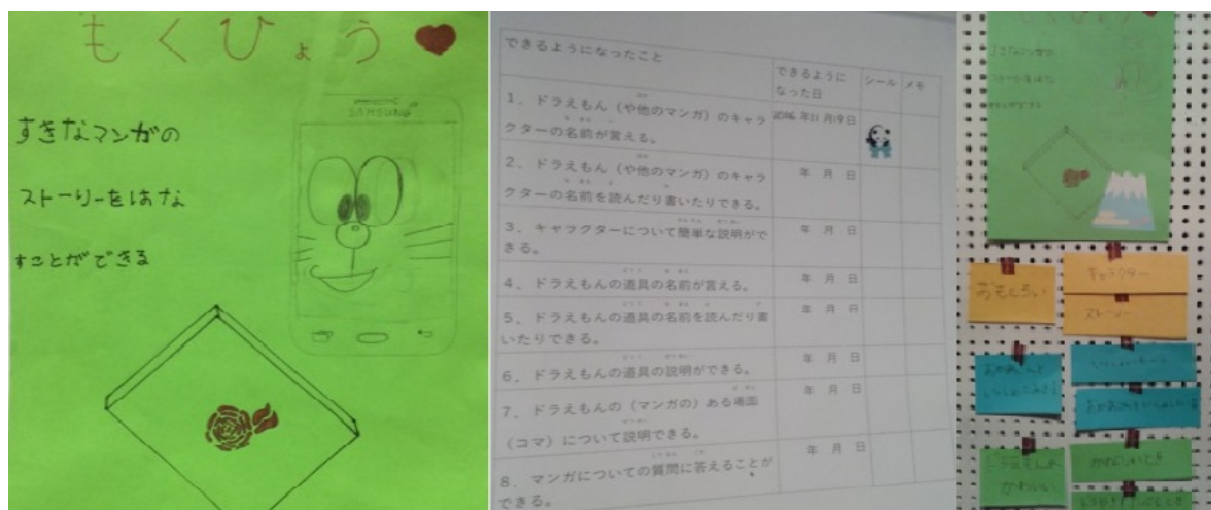 もくひょう
SAMSUNG
すきなマンガの
ストーリーをはな
すことができる
できるようになったこと
できるように
なった日
シール
メモ
1. ドラえもん（や他のマンガ）のキャラ
クターの名前が言える。
2016年11月19日
2. ドラえもん（や他のマンガ）のキャラ
クターの名前を読んだり書いたりできる。
年 月 日
3. キャラクターについて簡単な説明がで
きる。
年 月 日
4. ドラえもんの道具の名前が言える。
年 月 日
5. ドラえもんの道具の名前を読んだり書
いたりできる。
年 月 日
6. ドラえもんの道具の説明ができる。
年 月 日
7. ドラえもんの（マンガの）ある場面
（コマ）について説明できる。
年 月 日
8. マンガについての質問に答えることが
できる。
年 月 日
もくひょう
すきなマンガの
ストーリーをはな
すことができる
おもしろい
キャラクター
ストーリー
かわいい
かなしいとき